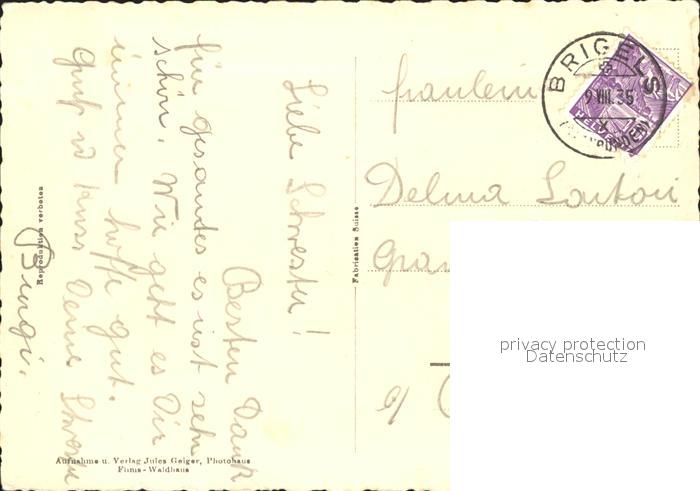 Liebe Schwester!
Besten Dank
für gesandtes es ist sehr
schön. Wie geht es Dir
immer hoffe gut.
Gruß u Kuss Deine Schwester
Fräulein
Delma
BRIGELS
9.VIII.35
(GRAUBÜNDEN)
HELVETIA
Reproduktion verboten
Fabrication Suisse
Aufnahme u. Verlag Jules Geiger, Photohaus
Flims-Waldhaus
privacy protection
Datenschutz